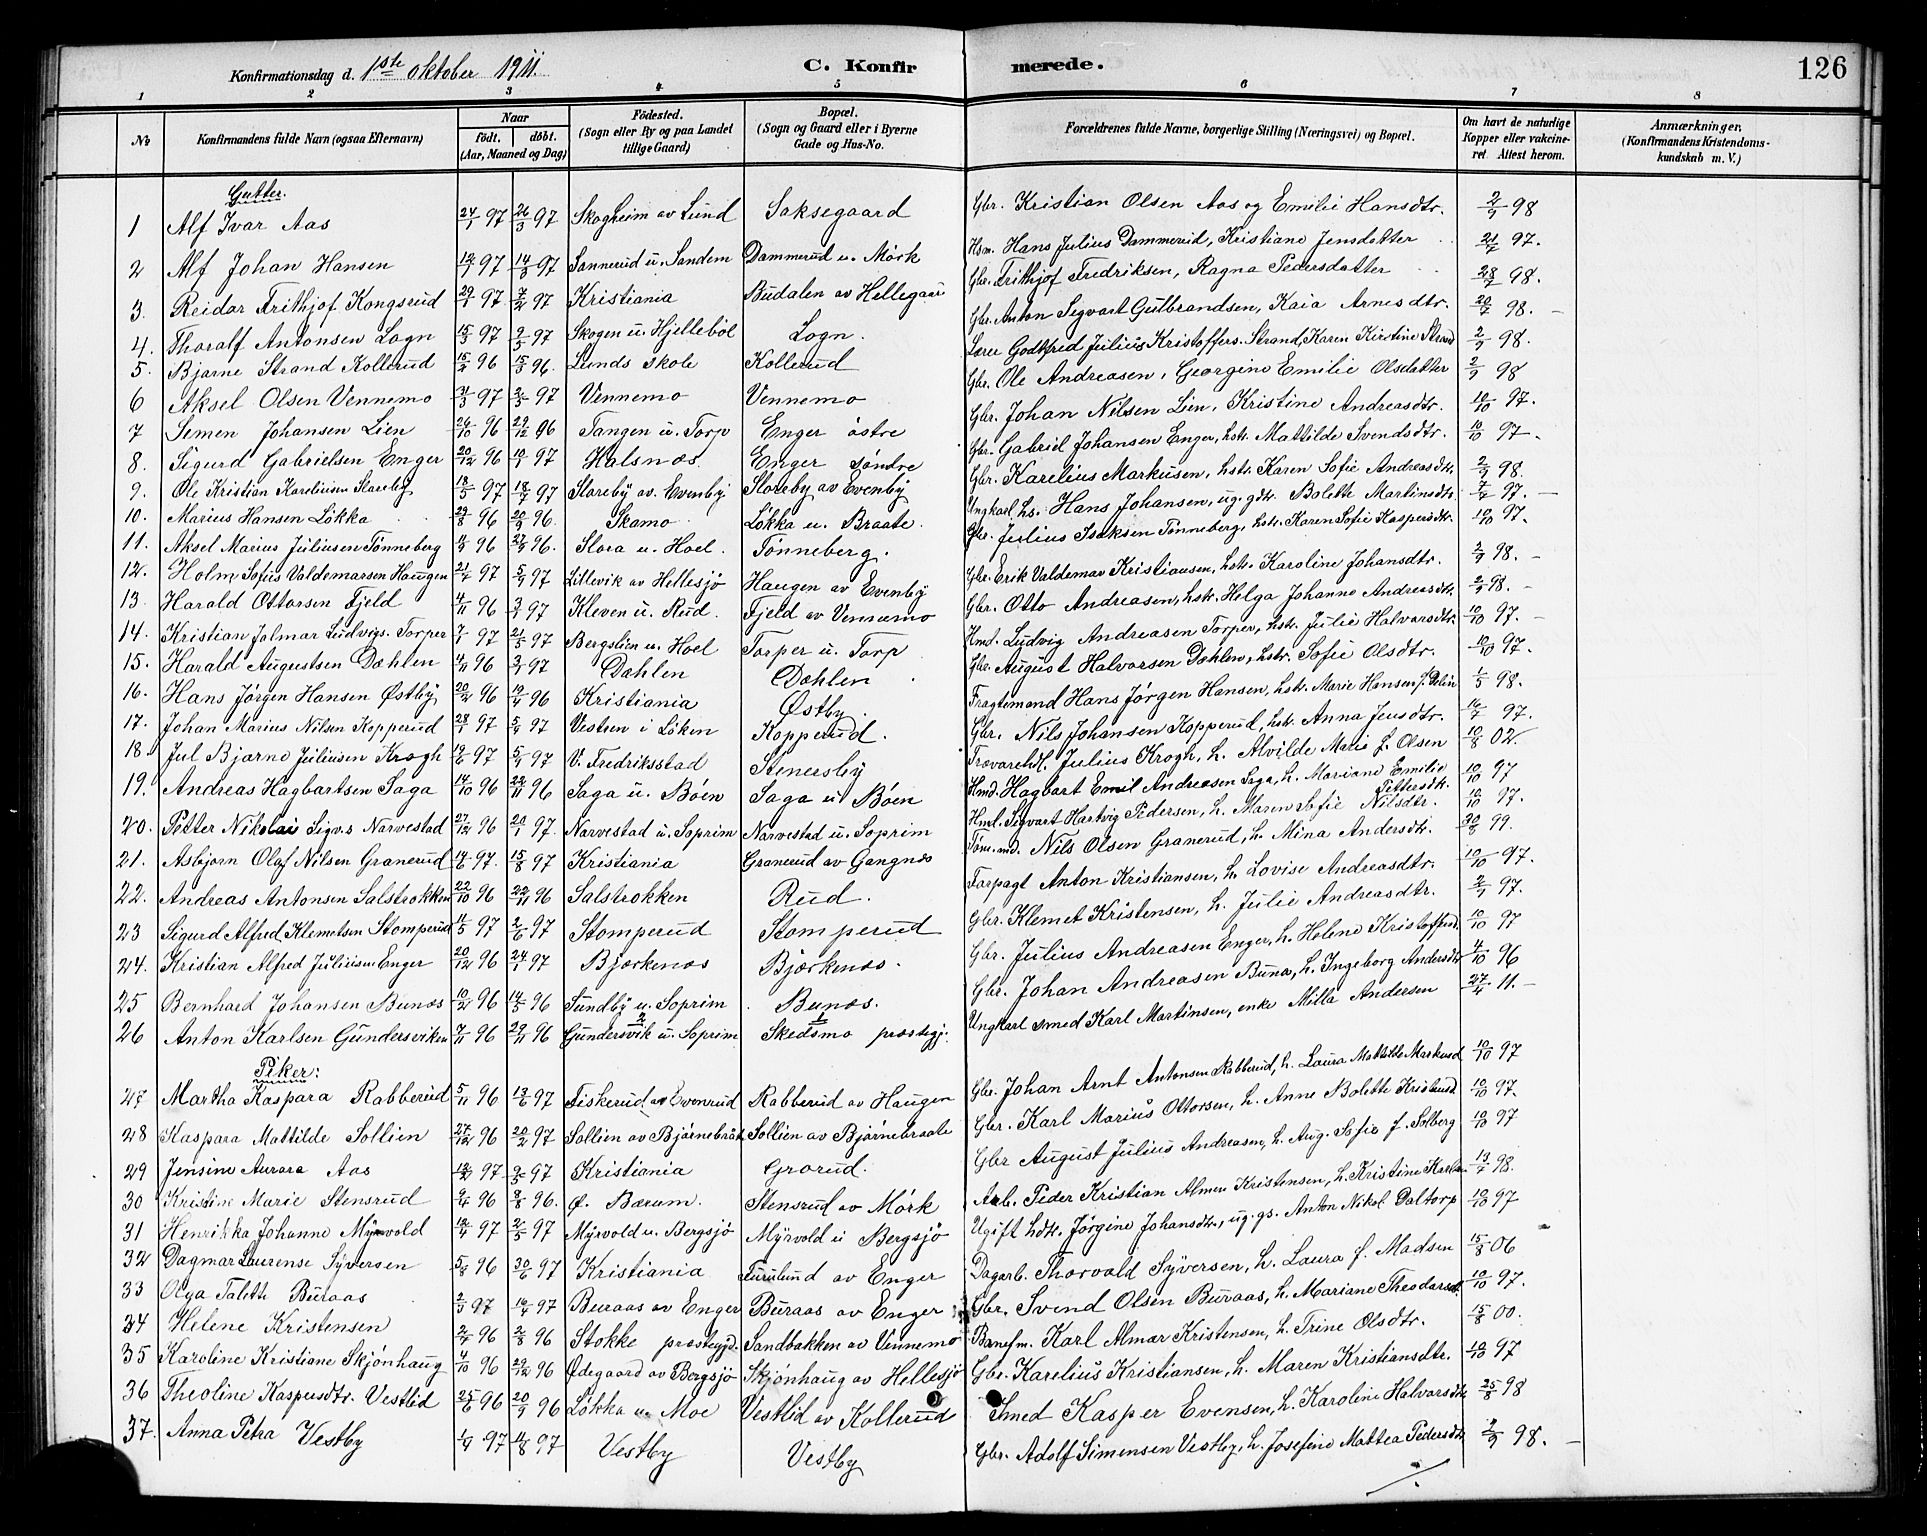 Konfirmationsdag d. 1ste oktober 1911.
C. Konfirmerede.
126
1 2 3 4 5 6 7 8
No
Konfirmandens fulde Navn (ogsaa Efternavn)
Naar
født. døbt.
(Aar, Maaned og Dag)
Fødested.
(Sogn eller By og paa Landet
tillige Gaard)
Bopæl.
(Sogn og Gaard eller i Byerne
Gade og Hus-No.
Forældrenes fulde Navne, borgerlige Stilling (Næringsvei) og Bopæl.
Om havt de naturlige
Kopper eller vakcine-
ret Attest herom.
Anmærkninger.
(Konfirmandens Kristendoms-
kundskab m. V.)
Gutter.
1 Alf Ivar Aas 24/1 97 26/3 97 Skogheim av Lund Saksegaard Gbr. Kristian Olsen Aas og Emilie Hansdtr. 2/9 98
2 Alf Johan Hansen 12/1 97 14/3 97 Sannerud u. Sandem Dammerud u. Mörk Hsm. Hans Julius Dammerud, Kristiane Jensdatter 21/7 97.
3. Reidar Frithjof Kongsrud 29/1 97 7/2 97 Kristiania Budalen av Hellegaar Gbr. Frithjof Fredriksen, Ragna Pedersdatter 28/7 98.
4. Thoralf Antonsen Logn 15/3 97 9/5 97 Skogen u. Hjelleböl Logn. Gbr. Anton Segvart Gulbrandsen, Kaia Arnesdtr. 20/7 98.
5. Bjarne Strand Kollerud 15/2 96 15/3 96. Lunds skole Kollerud Lærer Godtfred Julius Kristoffers. Strand, Karen Kirstine Strand 2/9 98.
6 Aksel Olsen Vennemo 4/3 97 2/5 97 Vennemo Vennemo Gbr. Ole Andreasen, Georgine Emilie Olsdatter 2/9 98
7 Simen Johansen Lien 26/10 96 27/12 96 Tangen u. Torp Enger östre Gbr. Johan Nilsen Lien, Kristine Andreasdtr. 10/10 97.
8. Sigurd Gabrielsen Enger 20/12 96 10/1 97 Halsnæs. Enger söndre Gbr. Gabriel Johansen Enger, hstr. Mattilde Svendsdtr. 10/10 97.
9. Ole Kristian Kareliusen Storeby 18/5 97 18/7 97 Storeby av Evenby Storeby av Evenby Gbr. Karelius Markusen, hstr. Karen Sofie Andreasdtr. 2/9 98.
10. Marius Hansen Lökka 29/8 96 20/9 96. Skamo Lökka u. Braate. Ungkarl hs. Hans Johansen, ug. gdtr. Bolette Martinsdtr. 7/7 97.
11. Aksel Marius Juliusen Tönneberg 11/9 96 27/9 96. Slora u. Hoel. Tönneberg. Gbr. Julius Isaksen Tönneberg, hstr. Karen Sofie Kaspersdtr. 10/10 97.
12. Holm Sofus Valdemarsen Haugen 21/7 97 5/9 97 Lillevik av Hellesjö Haugen av Evenby Gbr. Erik Valdemar Kristiansen, hstr. Karoline Johansdtr. 2/9 98.
13. Harald Ottorsen Fjeld 4/11 96 3/1 97 Kleven u. Rud. Fjeld av Vennemo Gbr. Otto Andreasen, hstr. Helga Johanne Andreasdtr. 2/9 98.
14. Kristian Jalmar Ludvigs. Torper 7/1 97 21/5 97 Bergslien u. Hoel Torper u. Torp Hmd. Ludvig Andreasen Torper, hstr. Julie Halvorsdtr. 10/10 97.
15. Harald Augustsen Dæhlen 4/11 96 3/1 97 Dæhlen Dæhlen Gbr. August Halvorsen Dæhlen, hstr. Sofie Olsdtr. 10/10 97.
16. Hans Jörgen Hansen Östby 20/2 96 19/4 96 Kristiania Östby. Fragtemand Hans Jörgen Hansen, hstr. Marie Hansen f. 1/5 98.
17. Johan Marius Nilsen Kopperud 28/1 97 5/9 97 Vestsen i Löken Kopperud. Gbr. Nils Johansen Kopperud, hstr. Anna Jensdtr. 14/7 97.
18 Jul Bjarne Juliusen Krogh 19/6 97 5/9 97 V. Fredriksstad Stenersby Trævarehdl. Julius Krogh, h. Alvilde Marie f. Olsen 10/8 02.
19. Andreas Hagbartsen Saga 14/10 96 22/11 96 Saga u. Böen Saga u. Böen Hmd. Hagbart Emil Andreasen Saga, h. Mariane Emilie Pettersdtr. 10/10 97
20. Petter Nikolai Sigv.s Narvestad 27/12 96 20/1 97. Narvestad u. Soprim Narvestad u. Soprim Hml. Segvart Hartvig Pedersen, h. Maren Sofie Nilsdtr. 10/10 97.
21. Asbjørn Olaf Nilsen Granerud 14/6 97. 15/8 97 Kristiania Granerud av Gangnæs Töm.md. Nils Olsen Granerud, h. Mina Andersdtr. 30/8 99.
22. Andreas Antonsen Salstrokken 22/10 96 22/11 96 Salstrokken Rud. Forpagt Anton Kristiansen, h. Lovise Andreasdtr. 10/10 97.
23 Sigurd Alfred Klemetsen Stomperud 11/5 97 2/6 97 Stomperud Stomperud Gbr. Klemet Kristensen, h. Julie Andreasdtr. 2/9 97.
24. Kristian Alfred Juliusen Enger 20/12 96 24/1 97 Bjærkenæs Bjærkenæs. Gbr. Julius Andreasen Enger, h. Helene Kristoffersd. 10/10 97
25 Bernhard Johansen Bunæs 10/2 96 14/5 96 Sundby u. Soprim Bunæs. Gbr. Johan Andreasen Bunæs, h. Ingeborg Andersdtr 4/10 96
26 Anton Karlsen Gundersviken 7/11 96 29/11 96 Gundersvik u. Soprim Skedsmo præstegj. Ungkarl smed Karl Martinsen, enke Milla Andersen 27/4 11.
Piker:
27 Martha Kaspara Rabberud 5/11 96 13/6 97 Fiskerud av Evenrud Rabberud av Haugen Gbr. Johan Arnt Antonsen Rabberud, h. Laura Mathilde Markusd 10/10 97
28 Kaspara Mattilde Sollien 27/12 96 20/2 97 Sollien av Bjørnebråt Sollien av Bjørnebraate Gbr. Karl Marius Ottorsen, h. Anne Bolette Kristiansd 10/10 97.
29 Jensine Aurora Aas 12/2 97 9/5 97 Kristiania Grorud. Gbr August Julius Andreasen, h. Aug. Sofie f. Solberg 10/10 97
30 Kristine Marie Stensrud 9/4 96 9/8 96. Ö. Bærum. Stensrud av Mörk Arb. Peder Kristian Almer Kristensen, h. Kristine 13/7 98.
31 Henrikka Johanne Myrvold 12/4 97 2/5 97 Myrvold u. Bergsjö Myrvold u Bergsjö Ugift hdtr. Jörgine Johansdtr., ug. gs. Anton Nikol Daltorp 10/10 97
32 Dagmar Laurense Syversen 5/8 96 30/6 97 Kristiania Furulund av Enger Dagarb. Thorvald Syversen, h. Laura f. Madsen 15/8 06
33 Olga Taleth Buraas 2/3 97 14/7 97 Buraas av Enger Buraas av Enger Gbr. Svend Olsen Buraas, h. Mariane Theodorsdtr. 10/10 97.
34 Helene Kristensen 2/5 96 2/8 96 Stokke præstegjd. Sandbakken av Vennemo Banefm. Karl Almar Kristensen, h. Trine Olsdtr. 15/8 00.
35 Karoline Kristiane Skjönhaug 4/10 96 29/12 96 Ödegaard av Bergsjö Skjönhaug av Hellesjö Gbr. Karelius Kristiansen, h. Maren Kristiansdtr. 10/10 97
36 Theoline Kaspersdtr. Vestlid 25/6 96 20/9 96 Lökka u. Moe Vestlid av Kollerud Smed Kasper Evensen, h. Karoline Halvorsdtr 25/8 98
37. Anna Petra Vestby 1/4 97 14/8 97 Vestby Vestby Gbr. Adolf Simensen Vestby, h. Josefine Mattea Pedersdtr 2/9 98.